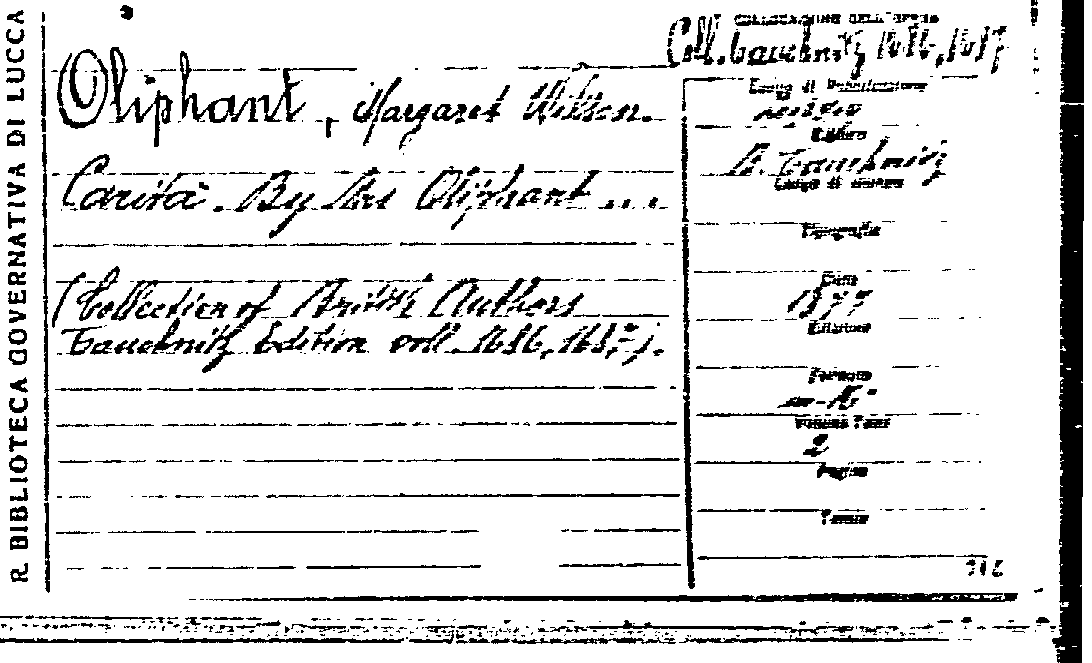 R. BIBLIOTECA GOVERNATIVA DI LUCCA
Oliphant, Margaret Wilson.
Carità. By Mrs Oliphant ...
(Collection of British Authors
Tauchnitz Edition voll. 1686, 1687).
COLLOCAZIONE DELL'OPERA
Coll. Tauchnitz 1686, 1687
Luogo di Pubblicazione
Editore
B. Tauchnitz
Luogo di stampa
Tipografia
Data
1877
Edizione
Formato
in-16°
Volumi Tomi
2
Pagine
Tavole